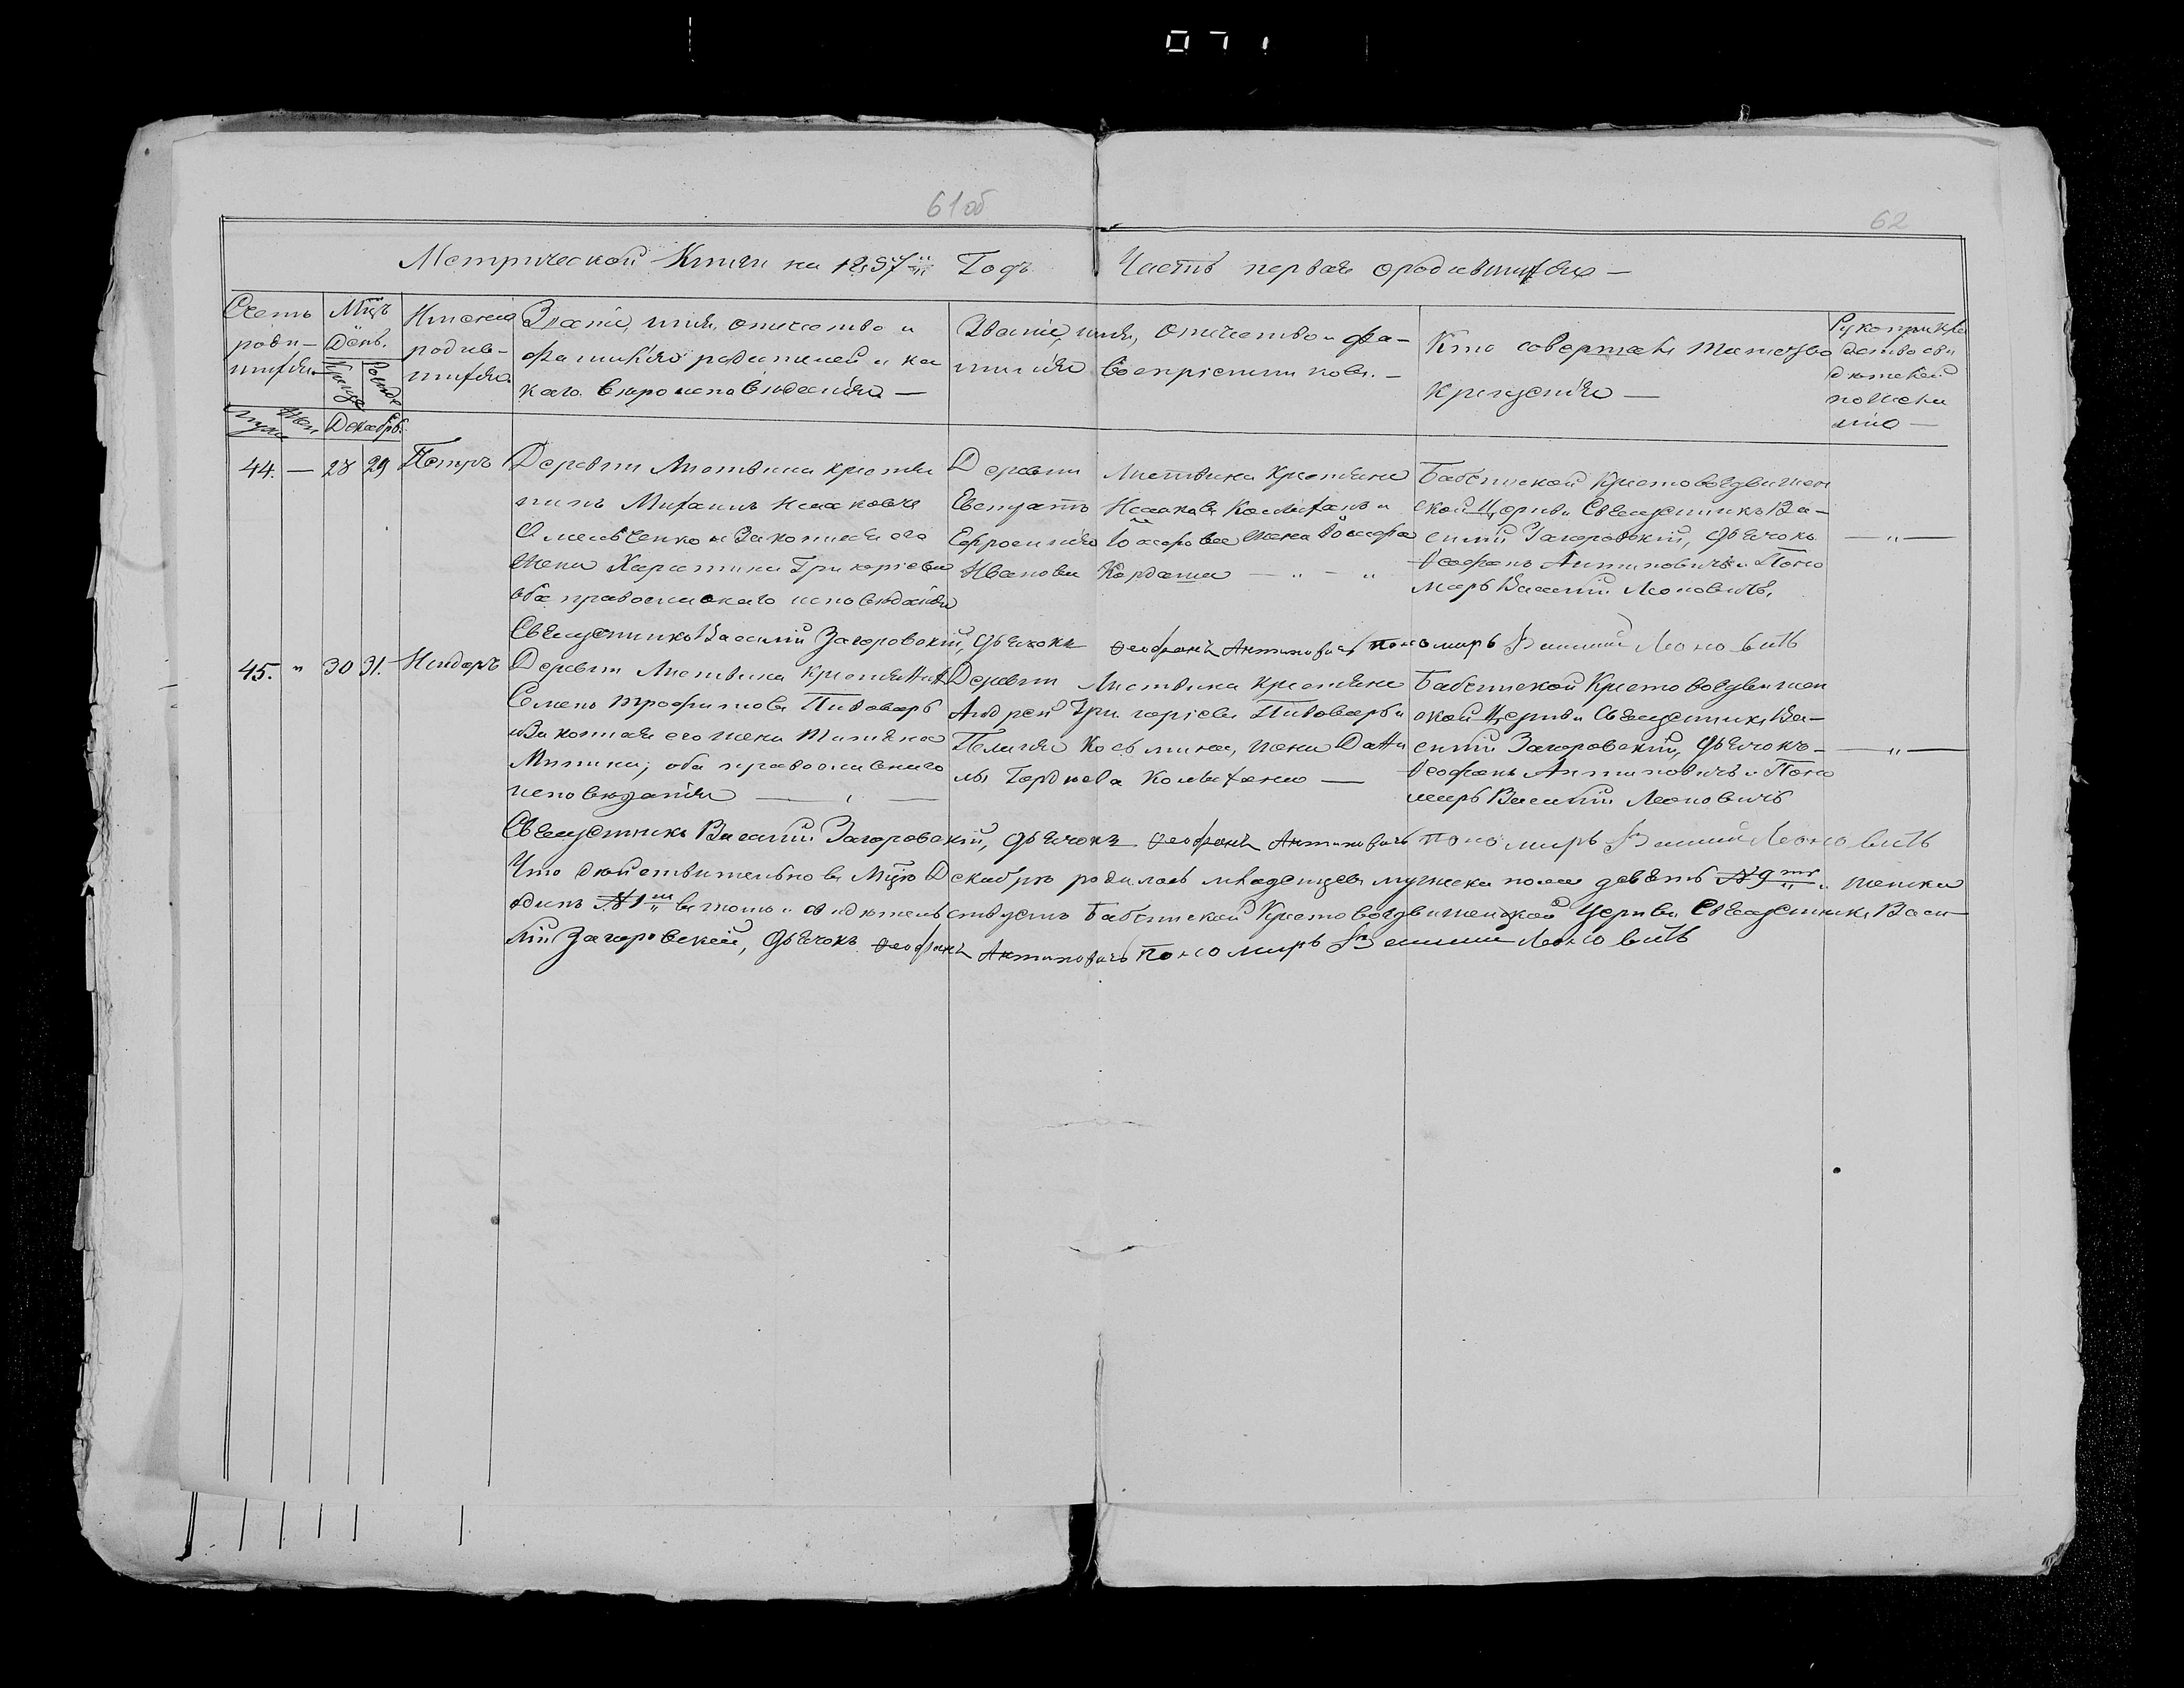 071
61об
62
Метрической Книги на 1857й Годъ Часть первая ородившихся —
Счетъ роди-шихся
Муж
Жен
Мцъ День.
Крещ
Рожде
Декабрь
Имена родив-шихся
Званіе, имя, отчество и
фамилія родителей и ка
каго вѣроисповѣданія —
Званіе, имя, отчество и фа-
милія воспріемниковъ. —
Кто совершалъ таинство
крещенія —
Рукоприкла
дство сви
дѣтелей
по жела
нію —
44. — 28 29 Петръ
Деревни Листвина крестья
нинъ Михаилъ Исаковъ
Омельченко и Законная его
жена Харитина Григоріева
оба православнаго исповѣданія
Деревни Листвина Крестьяне
Евстратъ Исааковъ и
Ефросинія Іосифова жена Іосифа
Иванова Кордаша — „ — „
Бабинской Крестовоздвижен
ской Церкви Священникъ Ва-
силій Загоровскій, Дьячокъ
Ѳеофанъ Антиповичъ и Поно
марь Василій Леоновичъ,
— „ —
Священникъ Василій Загоровскій, Дьячокъ Ѳеофанъ Антиповичъ пономарь Василий Леоновичь
45. „ 30 31.
Деревни Листвина Крестьянинъ
Семенъ Трофимовъ Пивоваръ
и Законная его жена Татьяна
оба православнаго
исповѣданія —
Деревни Листвина Крестьяне
Андрей Григоріевъ Пивоваръ и
Пелагія Косьмина, жена Дани
ла Гордѣева —
Бабинской Крестовоздвижен
ской Церкви Священникъ Ва-
силій Загоровскій, Дьячокъ —
Ѳеофанъ Антиповичъ и Поно
марь Василій Леоновичъ
— „ —
Священникъ Василій Загоровскій, Дьячокъ Ѳеофанъ Антиповичъ пономарь Василий Леоновичь
Что дѣйствительно въ Мцѣ Декабрѣ родилось младенцевъ мужеска пола девять № 9ть „ женска
одинъ № 1нъ въ томъ и свидѣтельствуемъ Бабинской Крестовоздвиженской Церкви Священникъ Васи-
лій Загоровскій, Дьячокъ Ѳеофанъ Антиповичъ Пономарь Василий Леоновичь